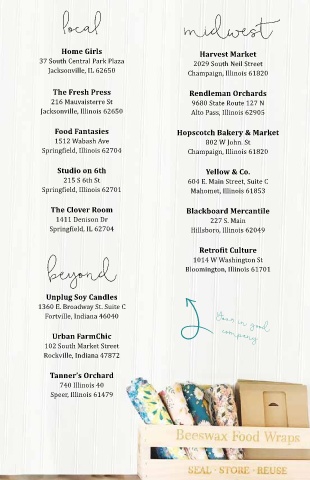 local
Home Girls
37 South Central Park Plaza
Jacksonville, IL 62650
The Fresh Press
216 Mauvaisterre St
Jacksonville, Illinois 62650
Food Fantasies
1512 Wabash Ave
Springfield, Illinois 62704
Studio on 6th
215 S 6th St
Springfield, Illinois 62701
The Clover Room
1411 Denison Dr
Springfield, IL 62704
beyond
Unplug Soy Candles
1360 E. Broadway St. Suite C
Fortville, Indiana 46040
Urban FarmChic
102 South Market Street
Rockville, Indiana 47872
Tanner's Orchard
740 Illinois 40
Speer, Illinois 61479
midwest
Harvest Market
2029 South Neil Street
Champaign, Illinois 61820
Rendleman Orchards
9680 State Route 127 N
Alto Pass, Illinois 62905
Hopscotch Bakery & Market
802 W John St
Champaign, Illinois 61820
Yellow & Co.
604 E. Main Street, Suite C
Mahomet, Illinois 61853
Blackboard Mercantile
227 S. Main
Hillsboro, Illinois 62049
Retrofit Culture
1014 W Washington St
Bloomington, Illinois 61701
Your in good
company
Beeswax Food Wraps
SEAL · STORE · REUSE